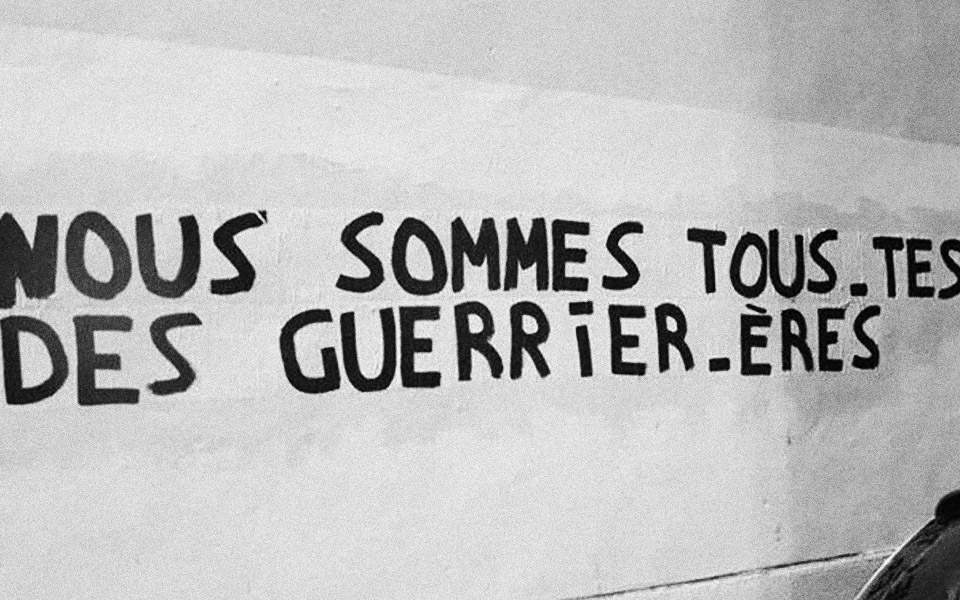 NOUS SOMMES TOUS.TES
DES GUERRiER.ÈRES